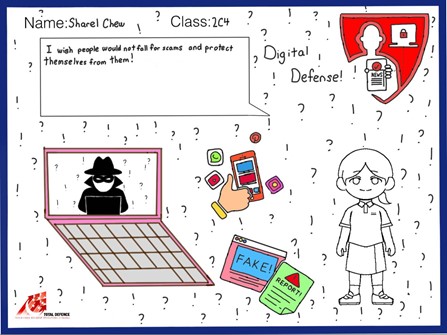 Name: Sharel Chew
Class: 2C4
I wish people would not fall for scams and protect
themselves from them!
Digital
Defense!
NEWS
FAKE!
REPORT!
TOTAL DEFENCE